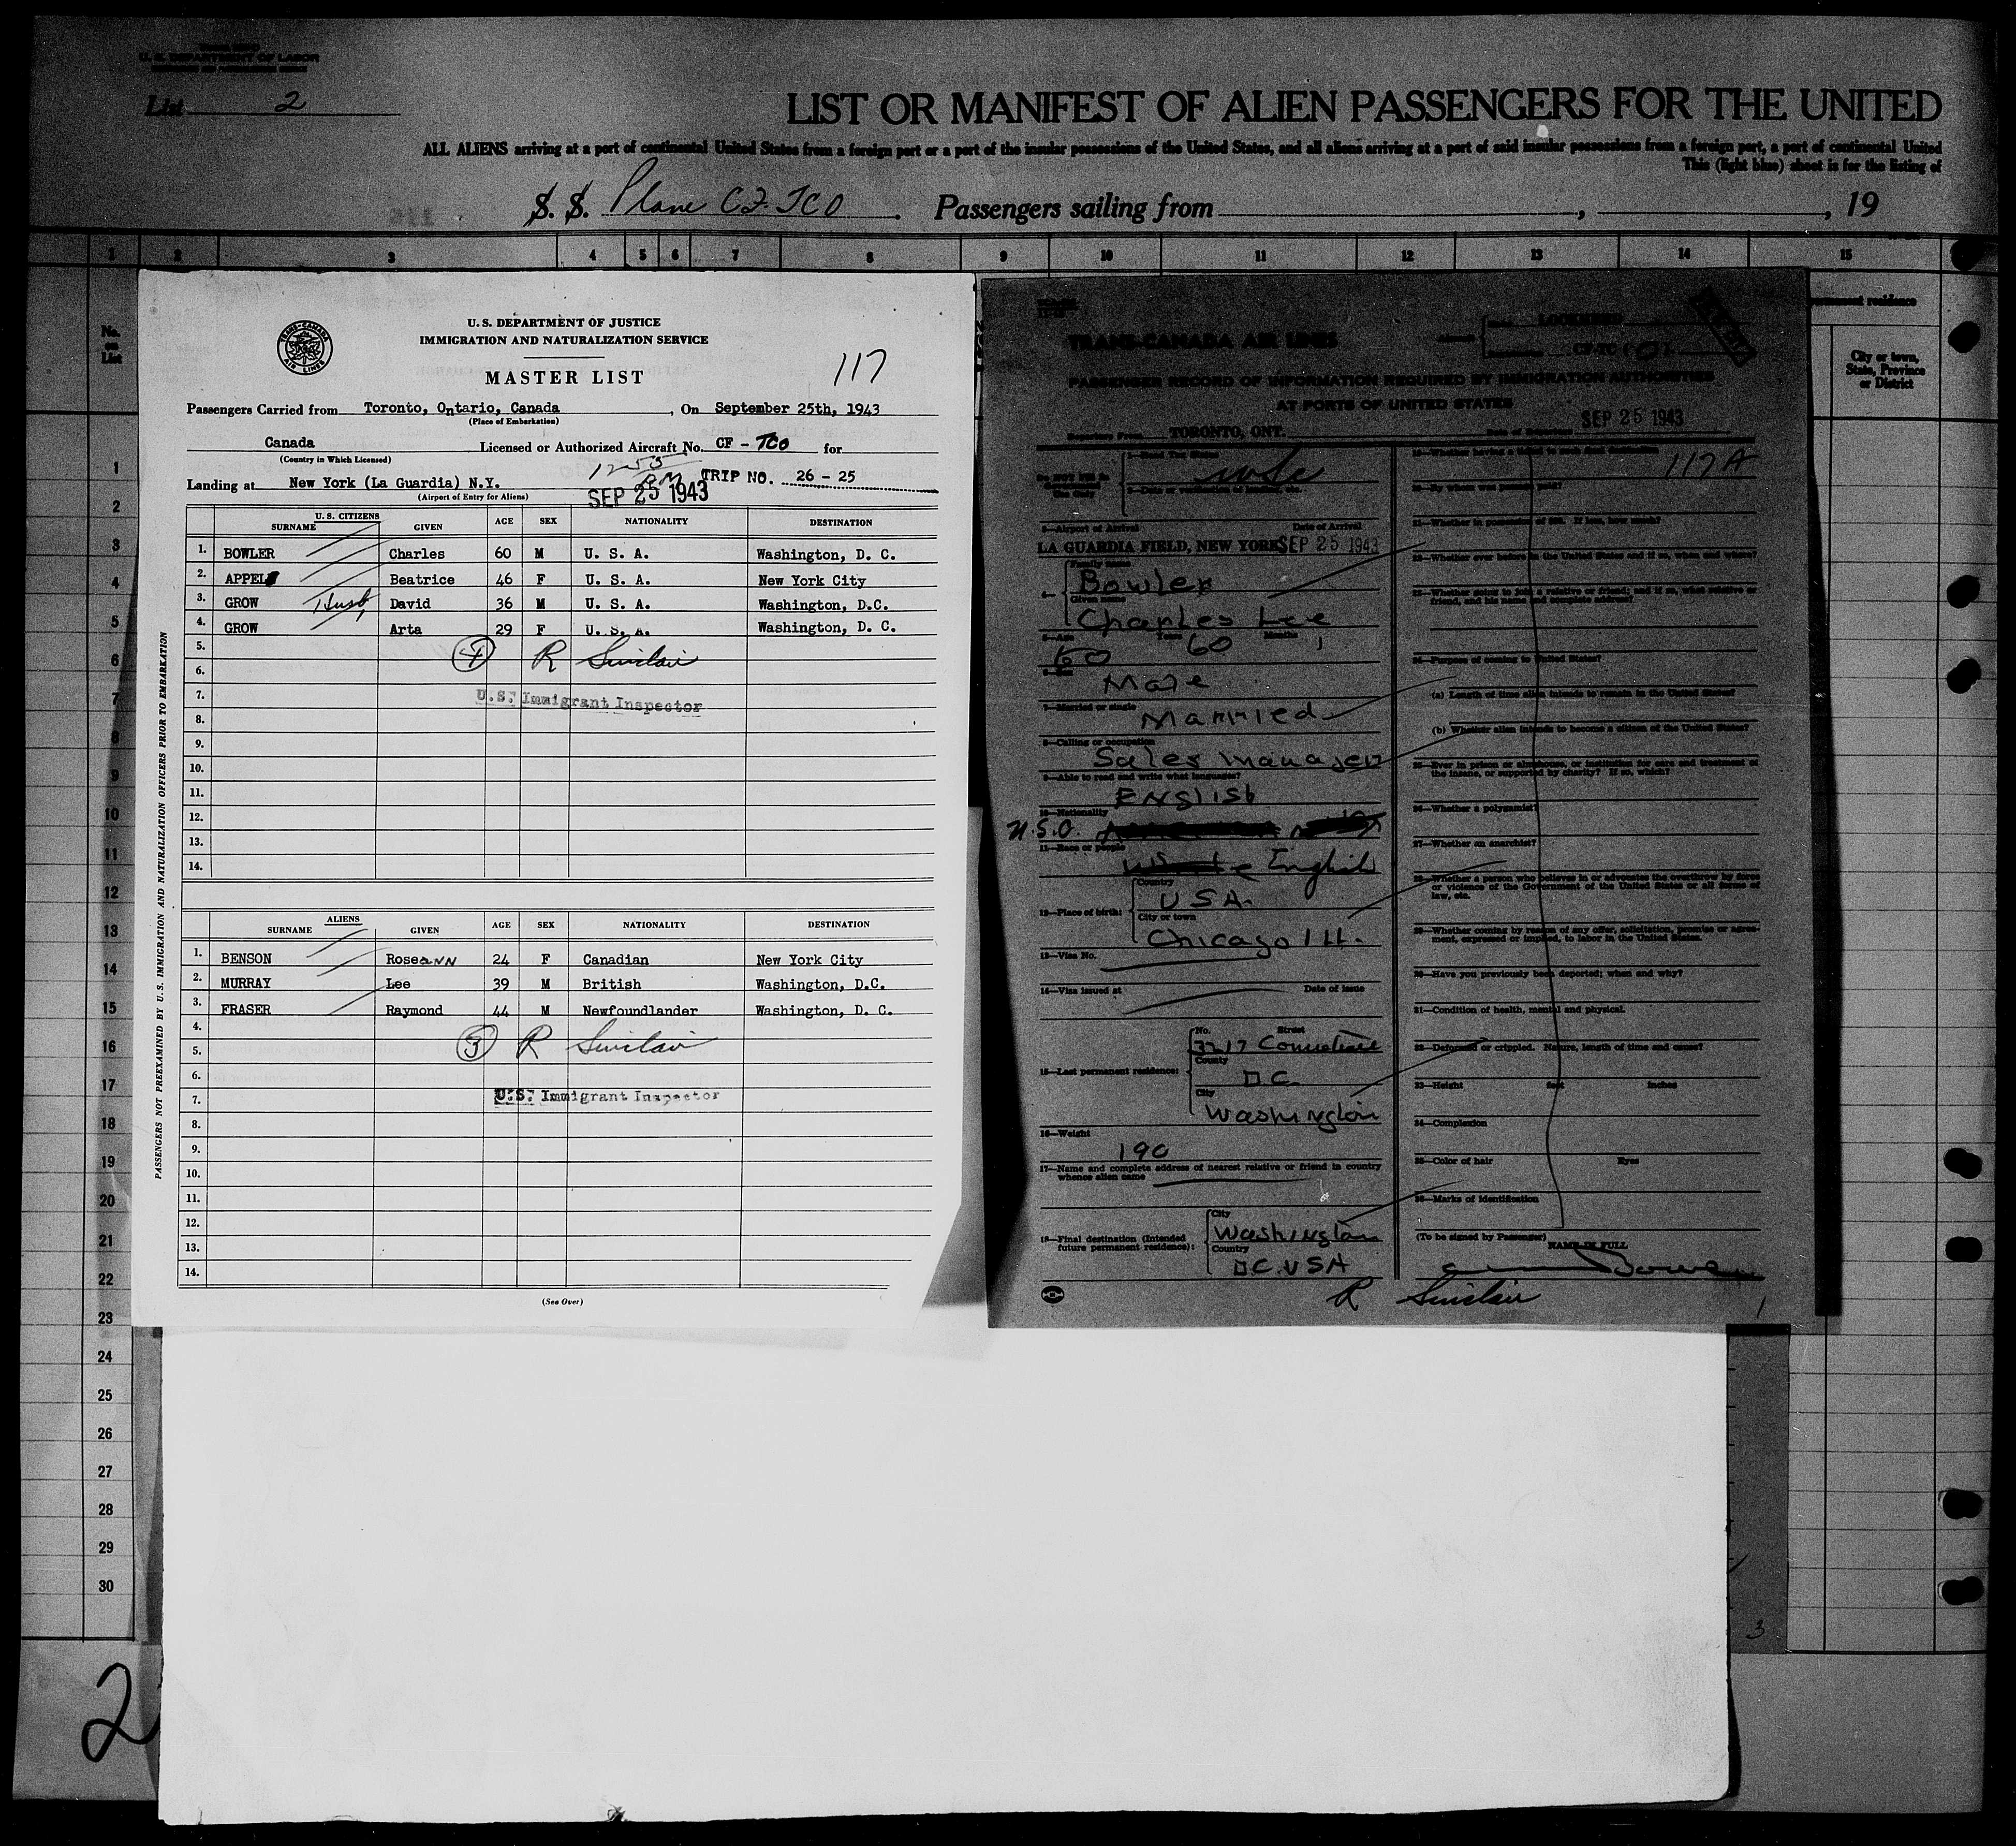 U. S. DEPARTMENT OF LABOR
List 2
LIST OR MANIFEST OF ALIEN PASSENGERS FOR THE UNITED
ALL ALIENS arriving at a port of continental United States from a foreign port or a port of the insular possessions of the United States, and all aliens arriving at a port of said insular possessions from a foreign port, a port of continental United
This (light blue) sheet is for the listing of
S. S. Plane CF-TCO . Passengers sailing from , , 19
1 2 3 4 5 6 7 8 9 10 11 12 13 14 15
No. on List
permanent residence
City or town, State, Province or District
1
2
3
4
5
6
7
8
9
10
11
12
13
14
15
16
17
18
19
20
21
22
23
24
25
26
27
28
29
30
2
TRANS-CANADA AIR LINES
U. S. DEPARTMENT OF JUSTICE
IMMIGRATION AND NATURALIZATION SERVICE
MASTER LIST
117
Passengers Carried from Toronto, Ontario, Canada , On September 25th, 1943
(Place of Embarkation)
Canada Licensed or Authorized Aircraft No. CF - TCO for
(Country in Which Licensed)
1255 PM
TRIP NO. 26 - 25
Landing at New York (La Guardia) N.Y.
(Airport of Entry for Aliens)
SEP 25 1943
U. S. CITIZENS
SURNAME GIVEN AGE SEX NATIONALITY DESTINATION
1. BOWLER Charles 60 M U. S. A. Washington, D. C.
2. APPEL Beatrice 46 F U. S. A. New York City
3. GROW David 36 M U. S. A. Washington, D.C.
4. GROW Arta 29 F U. S. A. Washington, D. C.
5.
4 R Sinclair
6.
7.
U.S. Immigrant Inspector
8.
9.
10.
11.
12.
13.
14.
ALIENS
SURNAME GIVEN AGE SEX NATIONALITY DESTINATION
1. BENSON RoseaNN 24 F Canadian New York City
2. MURRAY Lee 39 M British Washington, D.C.
3. FRASER Raymond 44 M Newfoundlander Washington, D. C.
4.
3 R Sinclair
5.
6.
7.
U.S. Immigrant Inspector
8.
9.
10.
11.
12.
13.
14.
(See Over)
PASSENGERS NOT PREEXAMINED BY U.S. IMMIGRATION AND NATURALIZATION OFFICERS PRIOR TO EMBARKATION
TRANS-CANADA AIR LINES
LOCKHEED
PASSENGER RECORD OF INFORMATION REQUIRED BY IMMIGRATION AUTHORITIES
AT PORTS OF UNITED STATES
Departure From TORONTO, ONT. Date of Departure SEP 25 1943
117 A
1—Head Tax Status
5—Airport of Arrival Date of Arrival
LA GUARDIA FIELD, NEW YORK SEP 25 1943
Family name
Bowler
Given name
Charles Lee
Age Years Months
60 60
Male
7—Married or single
Married
8—Calling or occupation
Sales Manager
9—Able to read and write what languages?
ENglish
10—Nationality
U.S.A.
11—Race or people
English
12—Place of birth:
Country
USA.
City or town
Chicago Ill.
13—Visa No.
14—Visa issued at Date of Issue
15—Last permanent residence:
No. Street
3217
County
D C
City
Washington
16—Weight
190
17—Name and complete address of nearest relative or friend in country whence alien came
18—Final destination (Intended future permanent residence):
City
Washington
Country
DC. USA
20—By whom was passage paid?
21—Whether in possession of $50. If less, how much?
22—Whether ever before in the United States and if so, when and where?
23—Whether going to join a relative or friend; and if so, what relative or friend, and his name and complete address?
24—Purpose of coming to United States?
(a) Length of time alien intends to remain in the United States?
(b) Whether alien intends to become a citizen of the United States?
25—Ever in prison or almshouse, or institution for care and treatment of the insane, or supported by charity? If so, which?
26—Whether a polygamist?
27—Whether an anarchist?
28—Whether a person who believes in or advocates the overthrow by force or violence of the Government of the United States or all forms of law, etc.
29—Whether coming by reason of any offer, solicitation, promise or agreement, expressed or implied, to labor in the United States.
30—Have you previously been deported; when and why?
31—Condition of health, mental and physical.
32—Deformed or crippled. Nature, length of time and cause?
33—Height feet inches
34—Complexion
35—Color of hair Eyes
36—Marks of identification
(To be signed by Passenger)
NAME IN FULL
R Sinclair
1
3